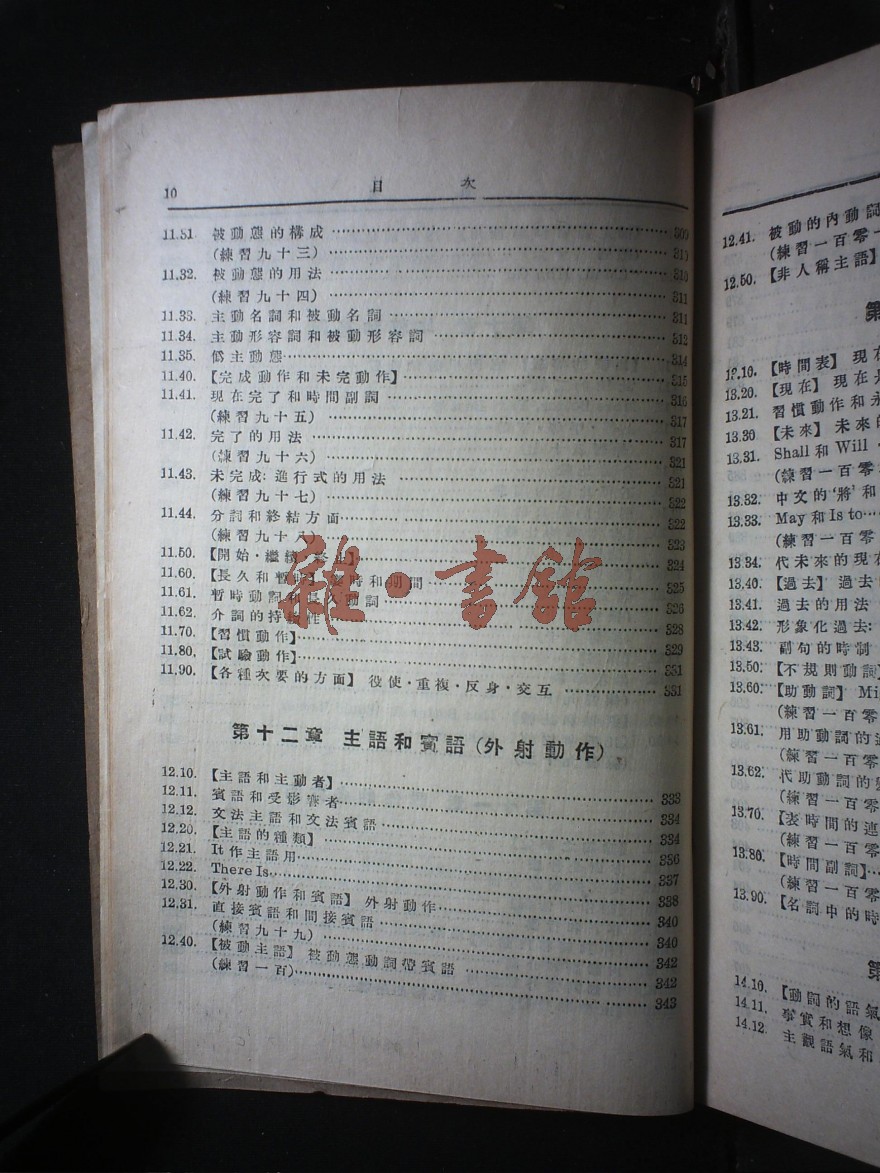 10 目 次
11.31. 被動態的構成 309
(練習九十三) 310
11.32. 被動態的用法 310
(練習九十四) 311
11.33. 主動名詞和被動名詞 311
11.34. 主動形容詞和被動形容詞 312
11.35. 僞主動態 314
11.40. 【完成動作和未完動作】 315
11.41. 現在完了和時間副詞 316
(練習九十五) 317
11.42. 完了的用法 317
(練習九十六) 321
11.43. 未完成: 進行式的用法 321
(練習九十七) 322
11.44. 分詞和終結方面 322
(練習九十八) 323
11.50. 【開始·繼續· 324
11.60. 【長久和暫時】 時和期間 325
11.61. 暫時動詞和長久動詞 326
11.62. 介詞的持續性 328
11.70. 【習慣動作】 329
11.80. 【試驗動作】 331
11.90. 【各種次要的方面】 役使·重複·反身·交互 331
雜·書館
第十二章 主語和賓語 (外射動作)
12.10. 【主語和主動者】 333
12.11. 賓語和受影響者 334
12.12. 文法主語和文法賓語 334
12.20. 【主語的種類】 336
12.21. It 作主語用 337
12.22. There Is 338
12.30. 【外射動作和賓語】 外射動作 340
12.31. 直接賓語和間接賓語 340
(練習九十九) 342
12.40. 【被動主語】 被動態動詞帶賓語 342
(練習一百) 343
12.41. 被動的內動詞
(練習一百零一
12.50. 【非人稱主語】
第
13.10. 【時間表】 現在
13.20. 【現在】 現在
13.21. 習慣動作和永
13.30 【未來】 未來的
13.31. Shall 和 Will
(練習一百零
13.32. 中文的‘將’和
13.33. May 和 Is to
(練習一百零
13.34. 代未來的現在
13.40. 【過去】 過去
13.41. 過去的用法
13.42. 形象化過去:
13.43. 副句的時制
13.50. 【不規則動詞】
13.60. 【助動詞】 Mi
(練習一百零
13.61. 用助動詞的
(練習一百零
13.62. 代助動詞的
(練習一百零
13.70. 【表時間的連
(練習一百零
13.80. 【時間副詞】
(練習一百零
13.90. 【名詞中的時
第
14.10. 【動詞的語氣
14.11. 事實和想像
14.12. 主觀語氣和